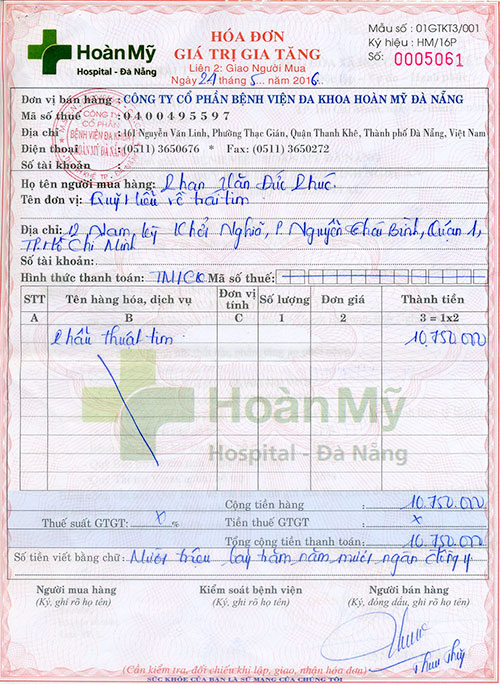 Hoàn Mỹ
Hospital - Đà Nẵng
HÓA ĐƠN
GIÁ TRỊ GIA TĂNG
Liên 2: Giao Người Mua
Ngày 24 tháng 5 năm 2016
Mẫu số : 01GTKT3/001
Ký hiệu : HM/16P
Số: 0005061
Đơn vị bán hàng : CÔNG TY CỔ PHẦN BỆNH VIỆN ĐA KHOA HOÀN MỸ ĐÀ NẴNG
Mã số thuế : 0400495597
Địa chỉ : 161 Nguyễn Văn Linh, Phường Thạc Gián, Quận Thanh Khê, Thành phố Đà Nẵng, Việt Nam
Điện thoại : (0511) 3650676 * Fax: (0511) 3650272
Số tài khoản :
Họ tên người mua hàng: Phan Văn Đức Phúc
Tên đơn vị: Quỹ Hiểu về trái tim
Địa chỉ: 12 Nam Kỳ Khởi Nghĩa, P. Nguyễn Thái Bình, Quận 1,
TP. Hồ Chí Minh
Số tài khoản:
Hình thức thanh toán: TM/CK Mã số thuế:
STT Tên hàng hóa, dịch vụ Đơn vị tính Số lượng Đơn giá Thành tiền
A B C 1 2 3 = 1x2
Phẫu thuật tim 10.750.000
Hoàn Mỹ
Hospital - Đà Nẵng
Cộng tiền hàng 10.750.000
Thuế suất GTGT: x % Tiền thuế GTGT x
Tổng cộng tiền thanh toán: 10.750.000
Số tiền viết bằng chữ: Mười triệu bảy trăm năm mươi ngàn đồng
Người mua hàng Kiểm soát bệnh viện Người bán hàng
(Ký, ghi rõ họ tên) (Ký, ghi rõ họ tên) (Ký, đóng dấu, ghi rõ họ tên)
(Cần kiểm tra, đối chiếu khi lập, giao, nhận hóa đơn)
SỨC KHỎE CỦA BẠN LÀ SỨ MẠNG CỦA CHÚNG TÔI